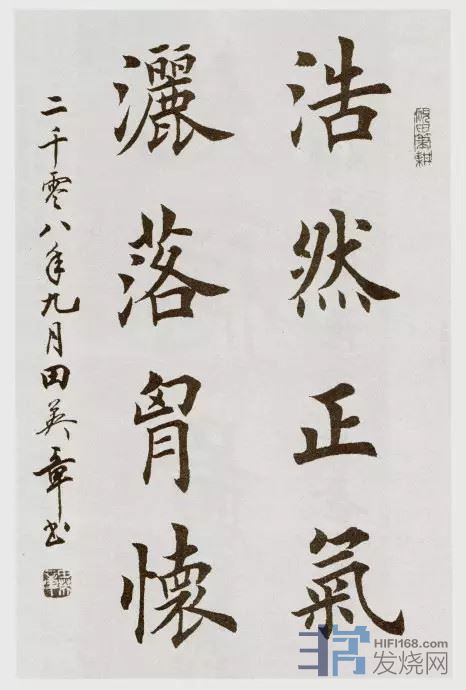 浩然正氣
灑落胷懷
二千零八年九月田英章書
HIFI168.com
发烧网